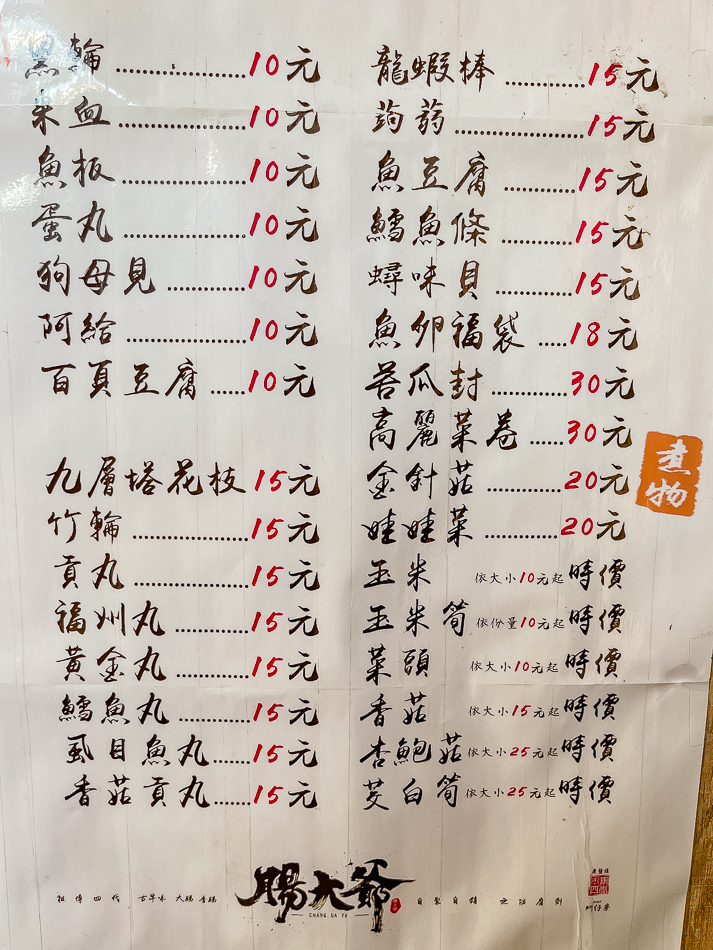 黑輪 ..................10元
米血 ..................10元
魚板 ..................10元
蛋丸 ..................10元
狗母見 ...........10元
阿給 .................10元
百頁豆腐 .....10元
九層塔花枝 15元
竹輪 ................15元
貢丸 .................15元
福州丸 ..........15元
黃金丸 ..........15元
鱈魚丸 ..........15元
虱目魚丸 .....15元
香菇貢丸 .....15元
龍蝦棒 ...........15元
蒟蒻 ..................15元
魚豆腐 ..........15元
鱈魚條 ..........15元
蟳味貝 ...........15元
魚卵福袋 ....18元
苦瓜封 ...........30元
高麗菜卷 .....30元
金針菇 ..........20元
娃娃菜 ..........20元
玉米 依大小10元起 時價
玉米筍 依份量10元起 時價
菜頭 依大小10元起 時價
香菇 依大小15元起 時價
杏鮑菇 依大小25元起 時價
茭白筍 依大小25元起 時價
煮物
祖傳四代 古早味 大腸 香腸
腸大爺
CHANG DA YE
自製自銷 無防腐劑